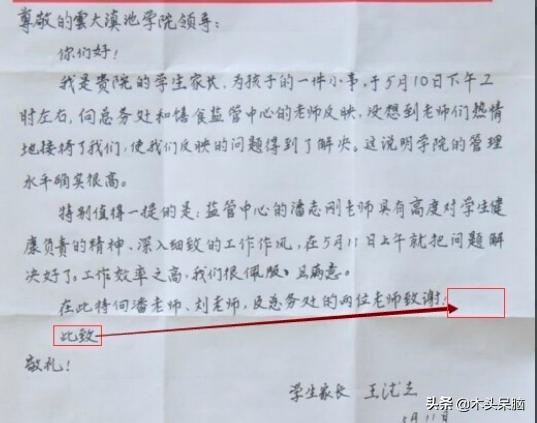 尊敬的雲大滇池学院领导：
你们好！
我是贵院的学生家长，为孩子的一件小事，于5月10日下午2
时左右，向总务处和膳食监管中心的老师反映，没想到老师们热情
地接待了我们，使我们反映的问题得到了解决。这说明学院的管理
水平确实很高。
特别值得一提的是：监管中心的潘志刚老师具有高度对学生健
康负责的精神、深入细致的工作作风，在5月11日上午就把问题解
决好了。工作效率之高，我们很佩服、且满意。
在此特向潘老师、刘老师，及总务处的两位老师致谢！
此致
敬礼！
学生家长 王
5月11日
头条 @木头呆脑